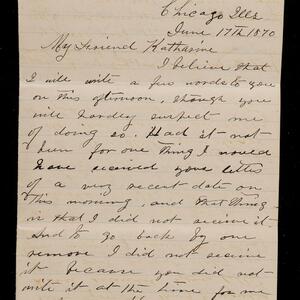 Chicago Ills
June 17th 1870
My Friend Katharine
I believe that
I will write a few words to you
on this afternoon, though you
will hardly suspect me
of doing so. Had it not
been for one thing I would
have received your letter
of a very recent date on
this morning, and that thing
is that I did not receive it.
And to go back by one
remove I did not receive
it because you did not
write it at the time for me